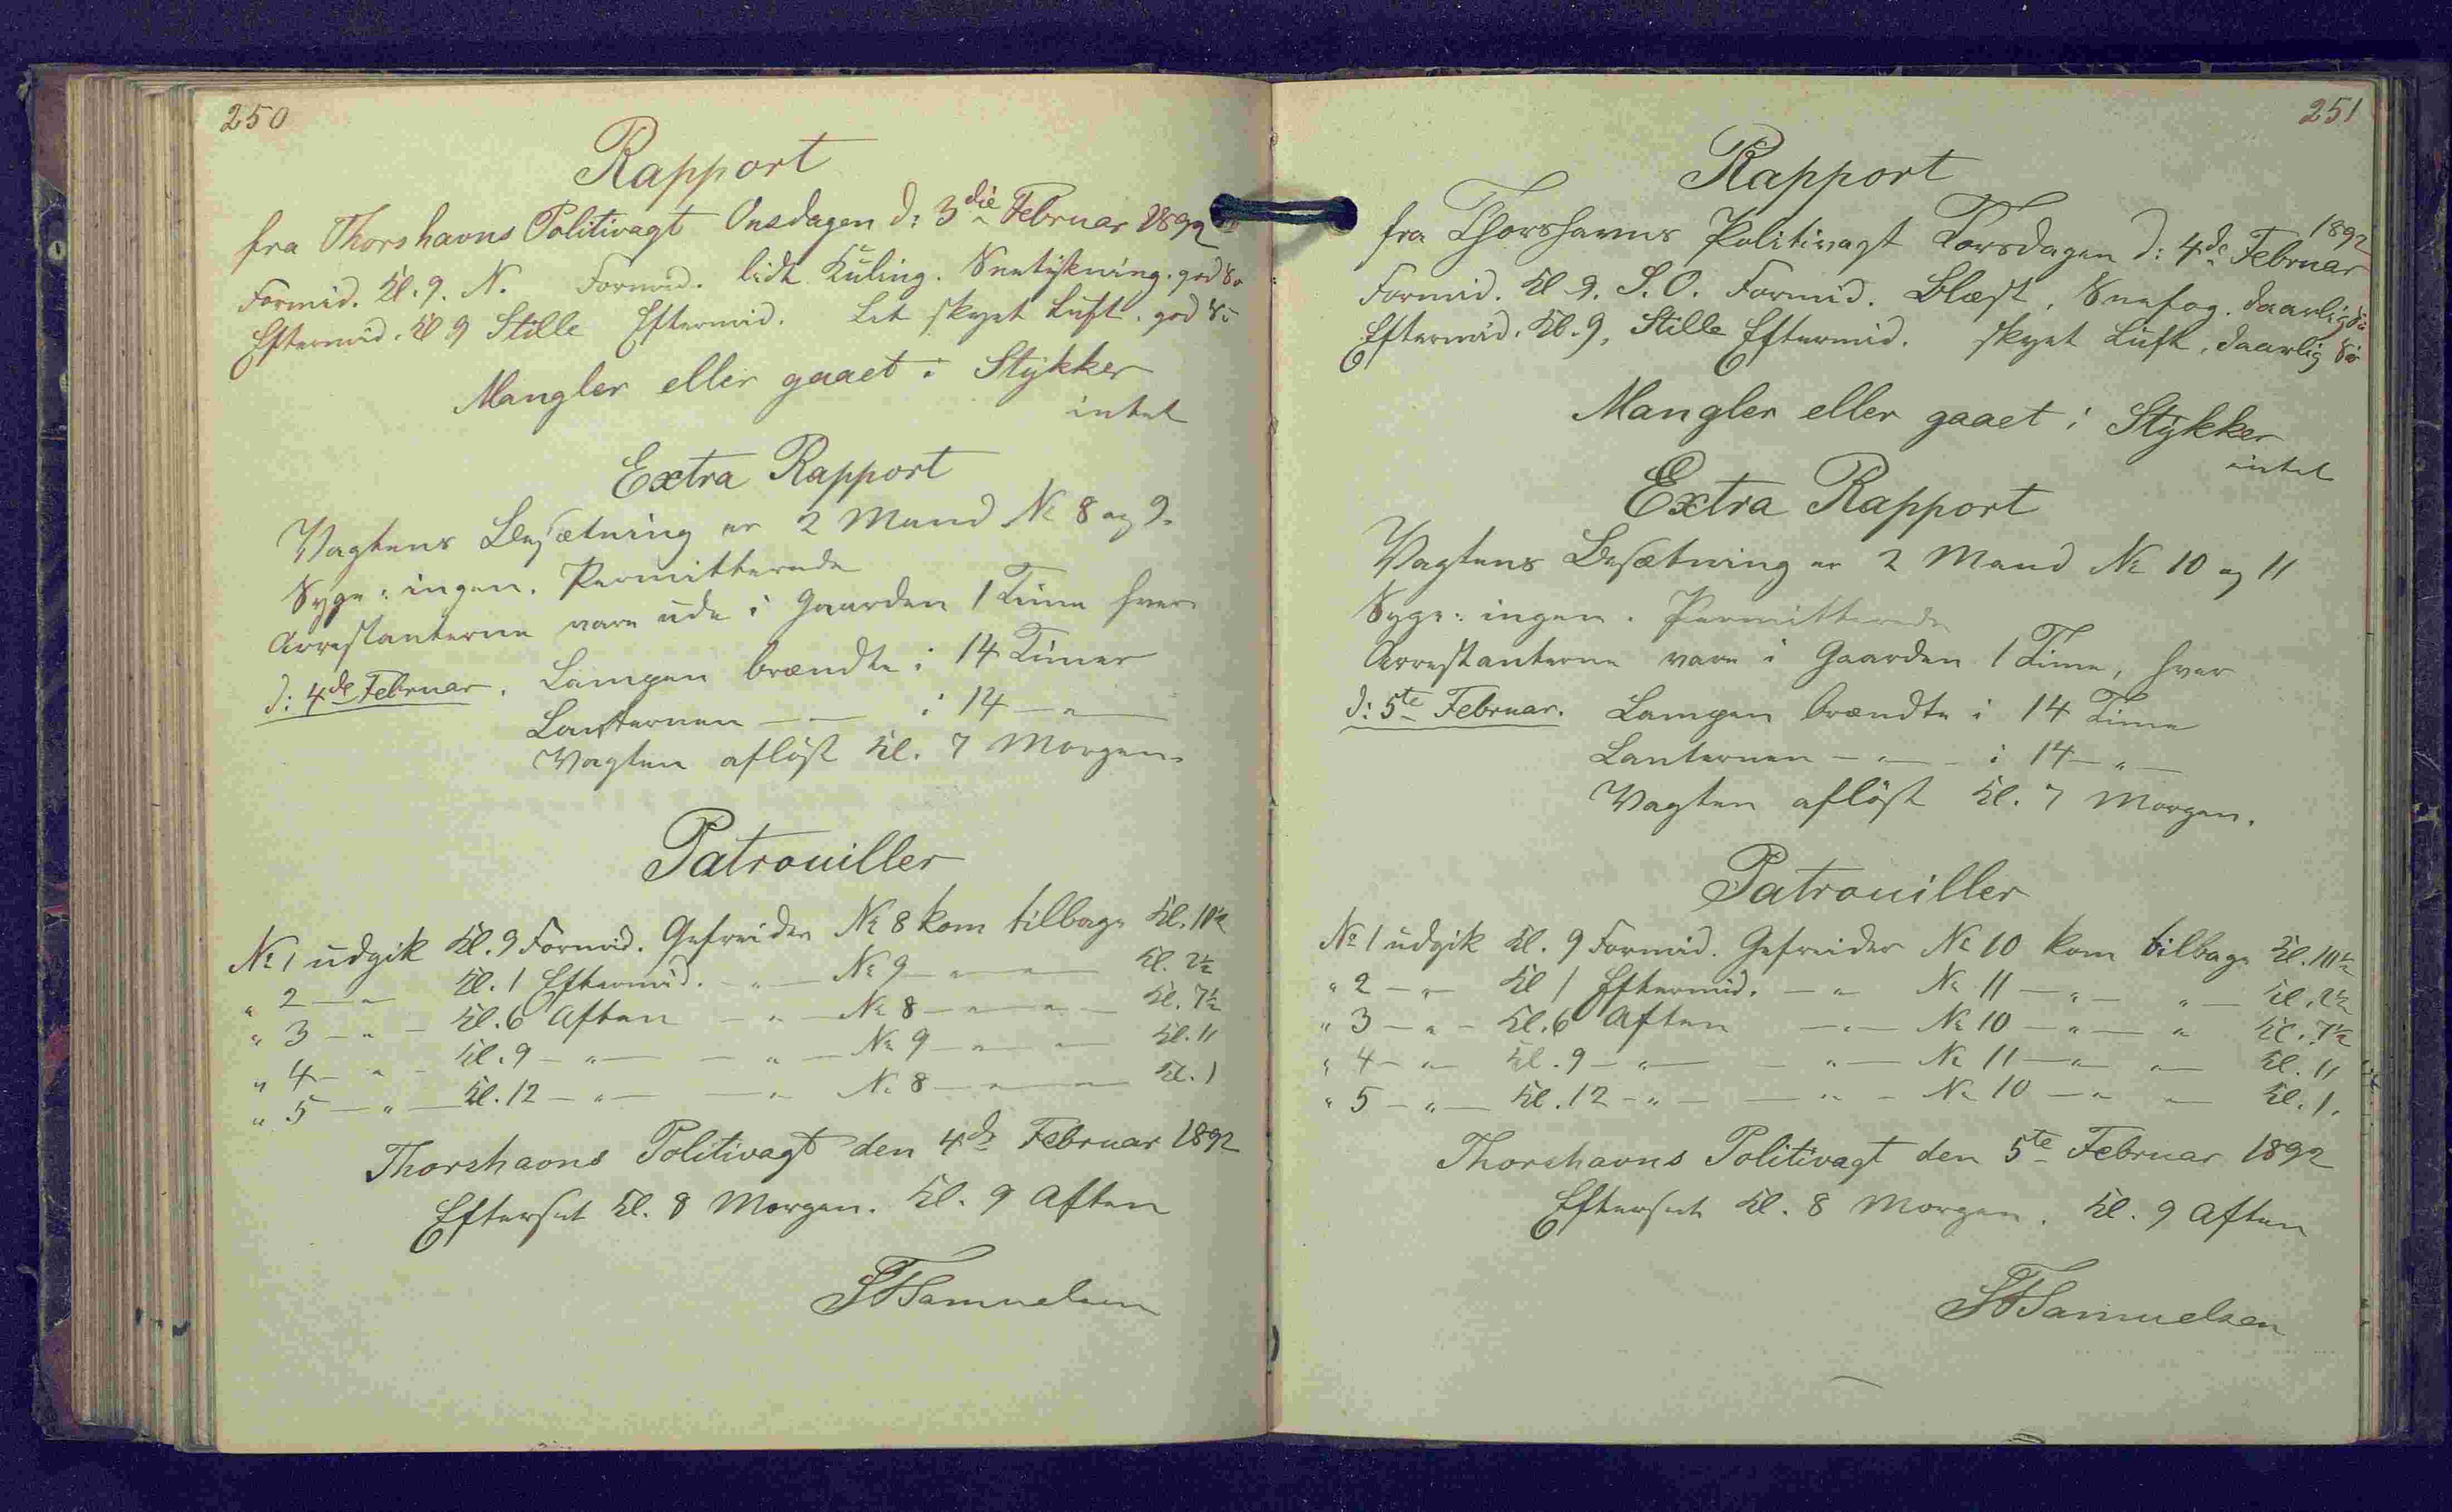 250
Rapport
fra Thorshavns Politivagt Onsdagen d: 3die Februar 1892
Formid. Kl. 9. N. Formid. lidt Kuling. Sneetykning. god Sø
Eftermid. Kl 9 Stille Eftermid. Let skyet Luft. god Sø
Mangler eller gaaet i Stykker
intet
Extra Rapport
Vagtens Besætning er 2 Mand No 8 og 9.
Syge: ingen. Permitterede
Arrestanterne vare ude i Gaarden 1 Time hver
d: 4de Februar. Lampen brændte i 14 Timer
Lanternen — — i 14 — " —
Vagten afløst Kl. 7 Morgen.
Patrouiller
No 1 udgik Kl. 9 Formid. Gefreider No 8 kom tilbage Kl. 10½
" 2 — " Kl. 1 Eftermid. — " — No 9 — " — " — Kl. 2½
" 3 — " — Kl. 6 Aften — " — No 8 — " — " — Kl. 7½
" 4 — " — Kl. 9 — " — — " — No 9 — " — " — Kl. 11
" 5 — " — Kl. 12 — " — — " No 8 — " — " — Kl. 1
Thorshavns Politivagt den 4de Februar 1892
Efterset Kl. 8 Morgen. Kl. 9 Aften
Samuelsen
251
Rapport
fra Thorshavns Politivagt Torsdagen d: 4de Februar 1892
Formid. Kl 9. S.O. Formid. Blæst. Snefog. daarlig Sø
Eftermid. Kl. 9, Stille Eftermid. skyet Luft, daarlig Sø
Mangler eller gaaet i Stykker
intet
Extra Rapport
Vagtens Besætning er 2 Mand No 10 og 11
Syge: ingen. Permitterede
Arrestanterne vare i Gaarden 1 Time, hver
d: 5te Februar. Lampen brændte i 14 Time
Lanternen — " — i 14 — " —
Vagten afløst Kl. 7 Morgen.
Patrouiller
No 1 udgik Kl. 9 Formid. Gefreider No 10 kom tilbage Kl. 10½
" 2 — " — Kl 1 Eftermid. — " No 11 — " — " — Kl. 2½
" 3 — " — Kl. 6 Aften — " — No 10 — " — " Kl. 7½
" 4 — " — Kl. 9 — " — — " — No 11 — " — " — Kl. 11
" 5 — " — Kl. 12 — " — — " — No 10 — " — " — Kl. 1.
Thorshavns Politivagt den 5te Februar 1892
Efterset Kl. 8 Morgen. Kl. 9 Aften
Samuelsen